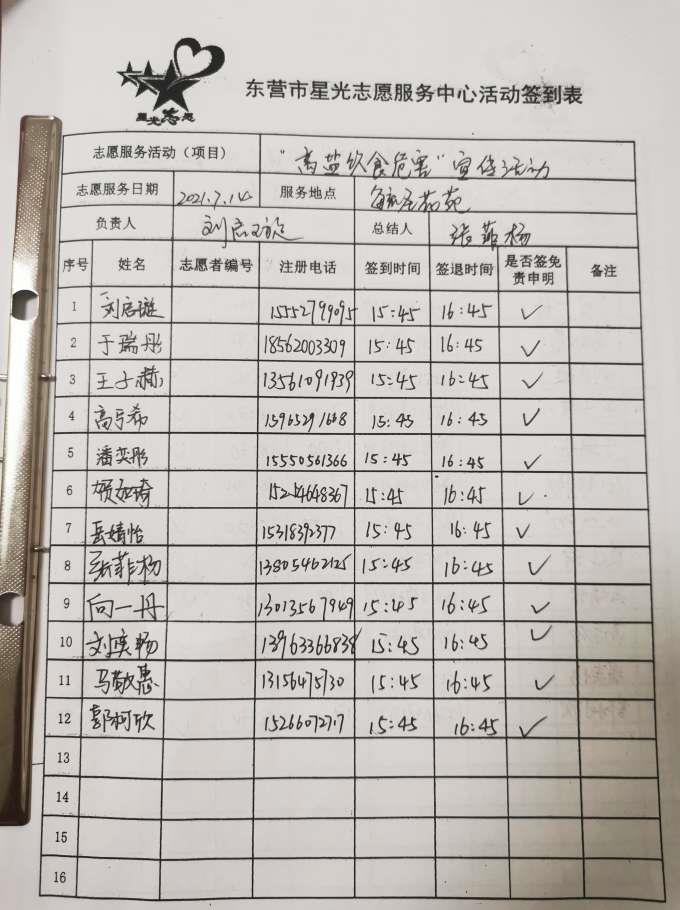 星光志愿
东营市星光志愿服务中心活动签到表
志愿服务活动（项目） "高盐饮食危害"宣传活动
志愿服务日期 2021.7.14 服务地点
负责人 总结人 张菲杨
序号 姓名 志愿者编号 注册电话 签到时间 签退时间 是否签免责申明 备注
1 15552799095 15:45 16:45 ✓
2 于瑞彤 18562003309 15:45 16:45 ✓
3 王子赫 13561091939 15:45 16:45 ✓
4 15965291668 15:45 16:45 ✓
5 潘奕彤 15550561366 15:45 16:45 ✓
6 15:45 16:45 ✓
7 岳婧怡 15318392377 15:45 16:45 ✓
8 张菲杨 13805462125 15:45 16:45 ✓
9 向一丹 13013567949 15:45 16:45 ✓
10 刘奕畅 13963366838 15:45 16:45 ✓
11 马敬惠 13156475730 15:45 16:45 ✓
12 郭柯欣 15266072717 15:45 16:45 ✓
13
14
15
16